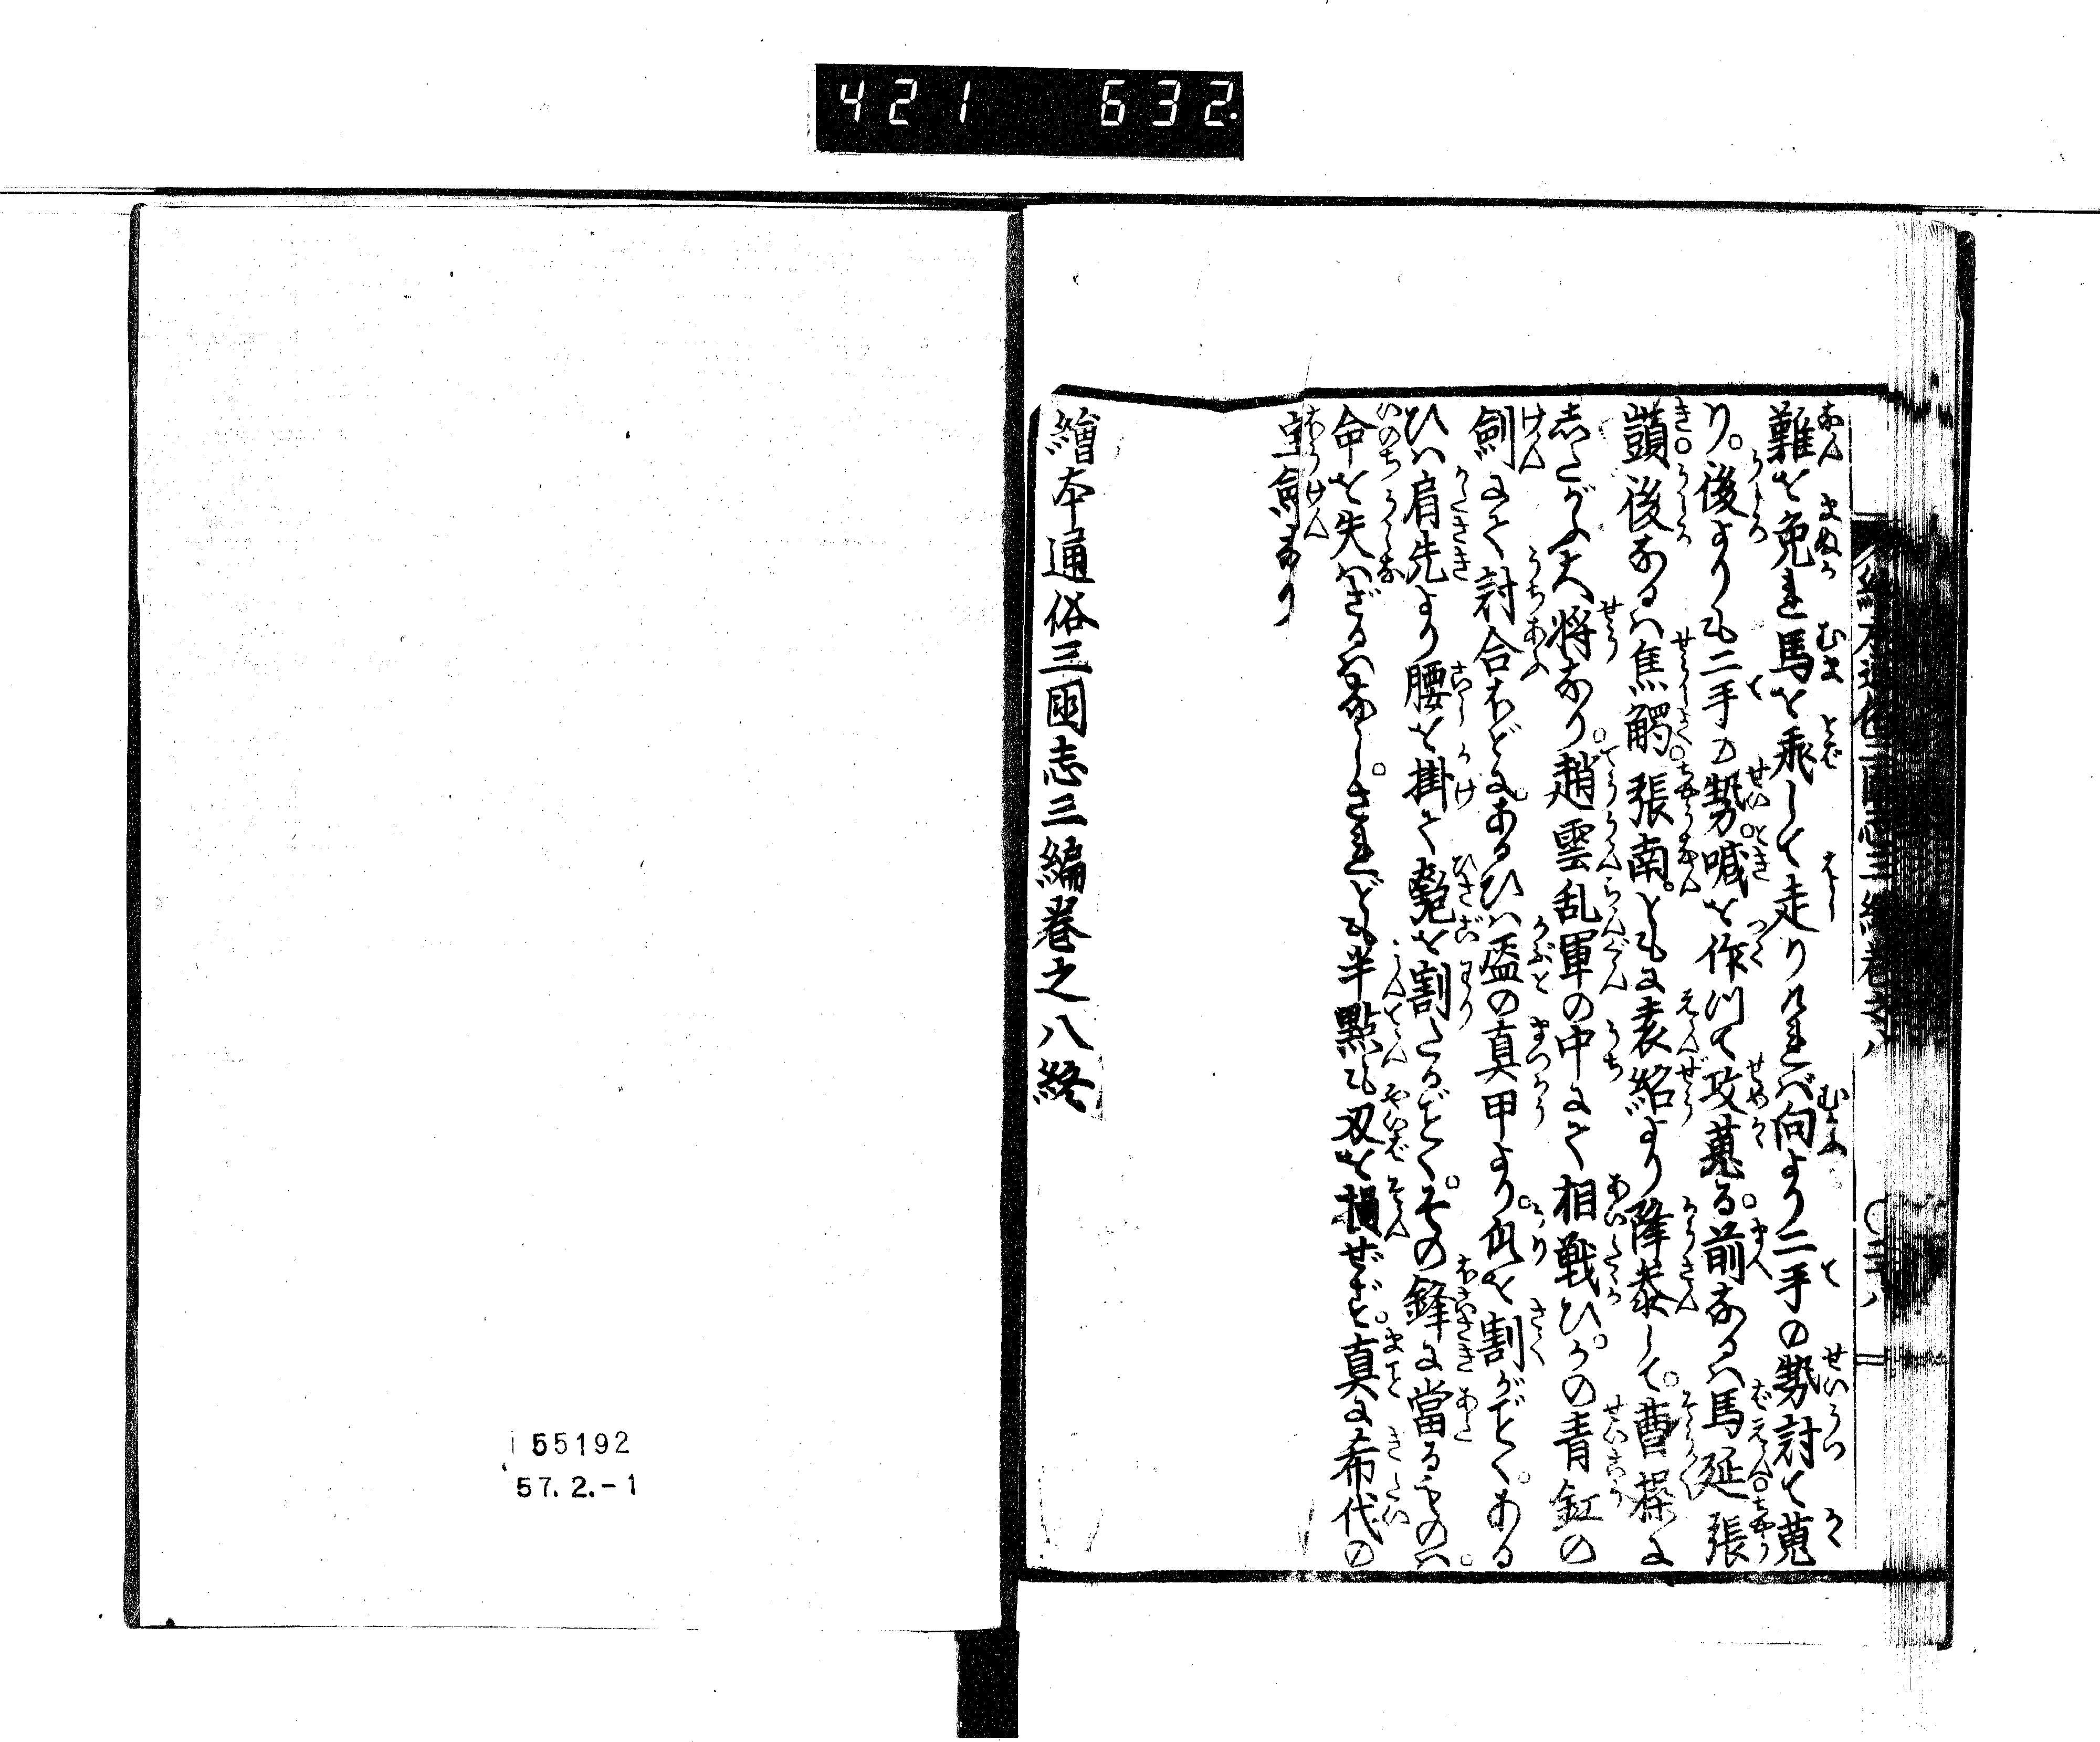 421 632
難を免れ馬を飛して走りければ向より二手の勢討て蒐
り。後よりも二手の勢喊を作りて攻蒐る。前なるハ馬延張
顗後なるハ焦觸張南。ともに袁紹より降参して。曹操に
志たがふ大将なり。趙雲乱軍の中にて相戦ひ。かの青釭の
劍にて討合ほどに。あるひハ盔の真甲より。瓜を割がごとく。ある
ひハ肩先より腰を掛て鬼を割たるがごとく。その鋒に當るものハ。
命を失ハざるハなし。されども半點も刃を損ぜず。真に希代の
宝劍なり
繪本通俗三國志三編巻之八終
155192
57.2.-1